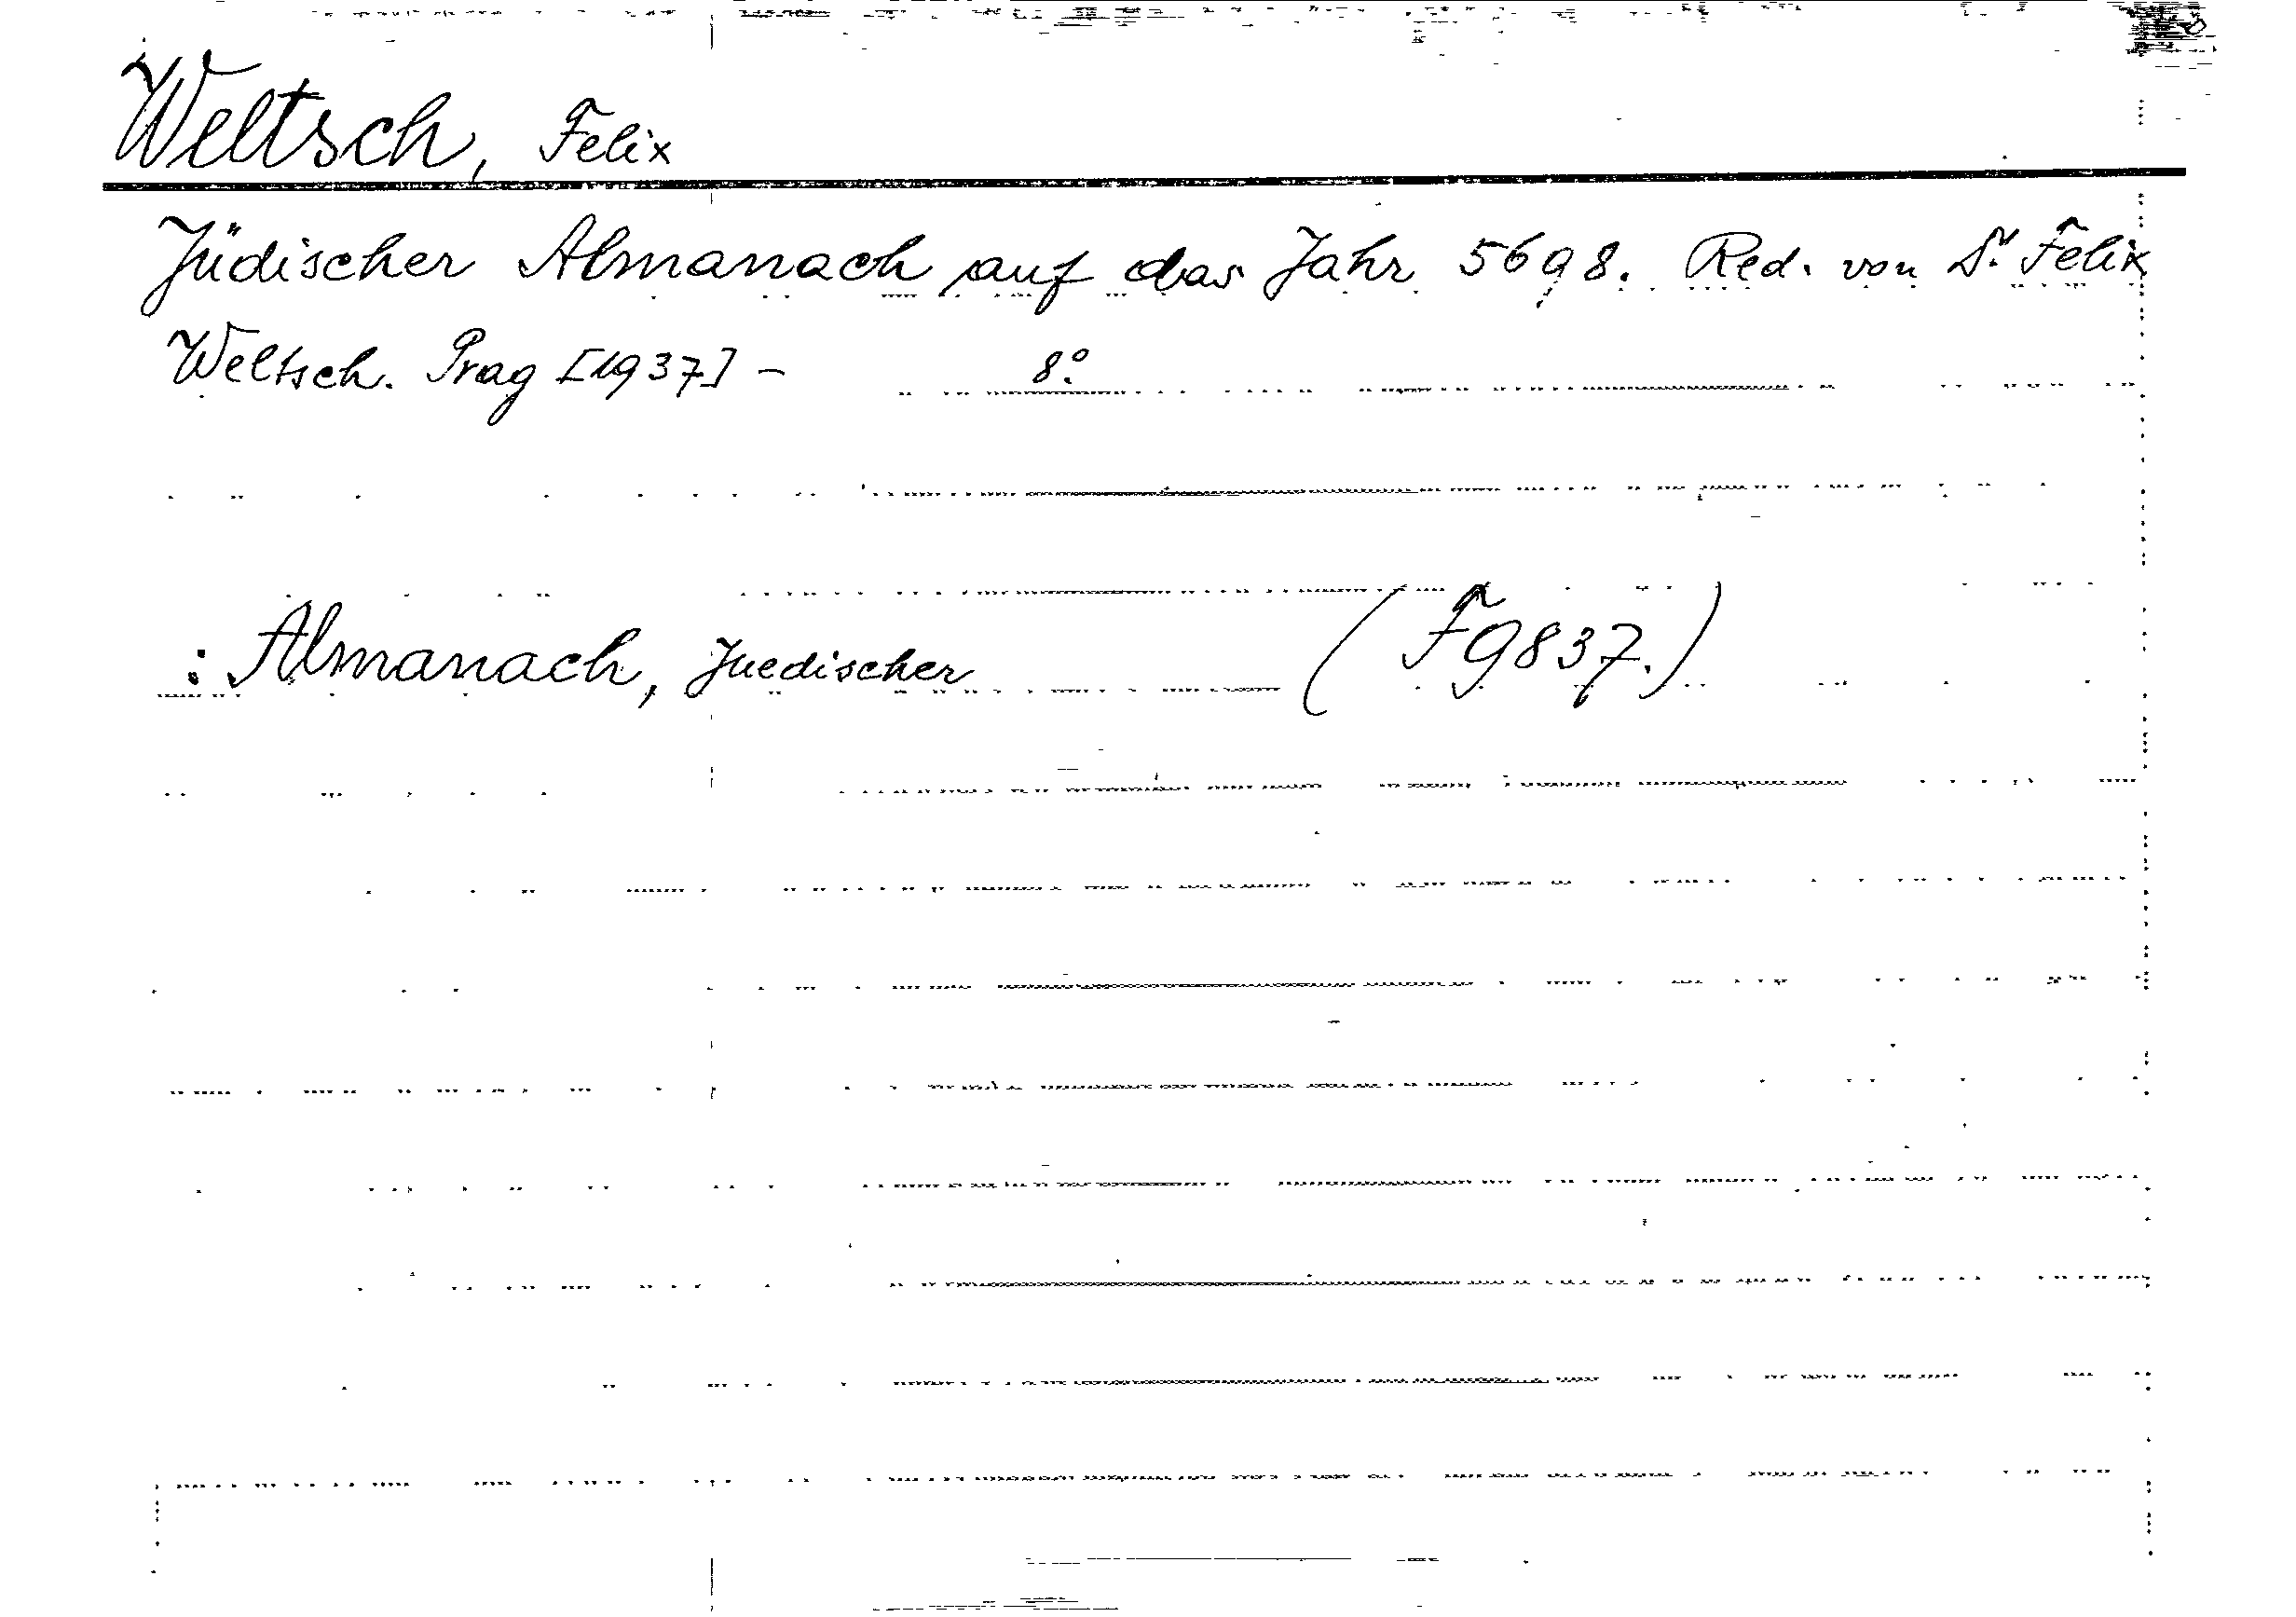 Weltsch, Felix
Jüdischer Almanach auf das Jahr 5698. Red. von Dr. Felix
Weltsch. Prag [1937] – 8°.
: Almanach, Juedischer (F9837.)